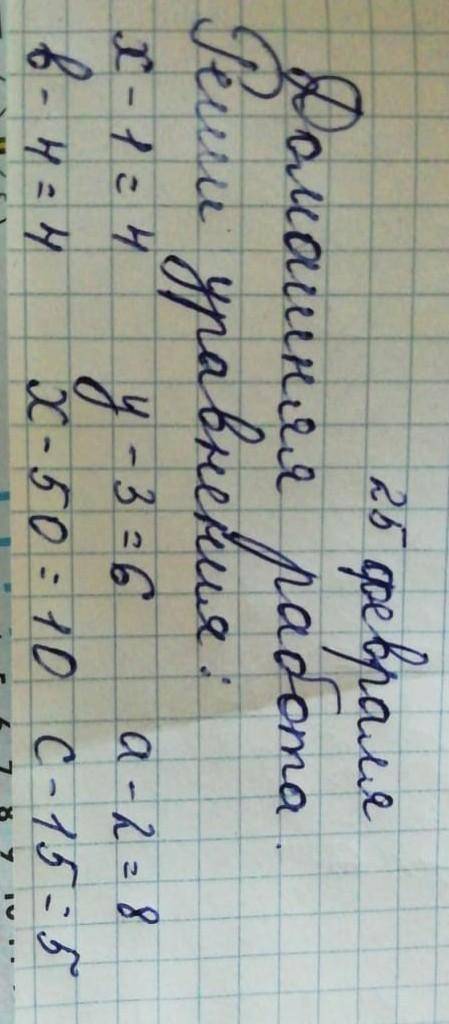 25 февраля
Домашняя работа.
Реши уравнения:
x - 1 = 4 y - 3 = 6 a - 2 = 8
в - 4 = 4 x - 50 = 10 c - 15 = 5